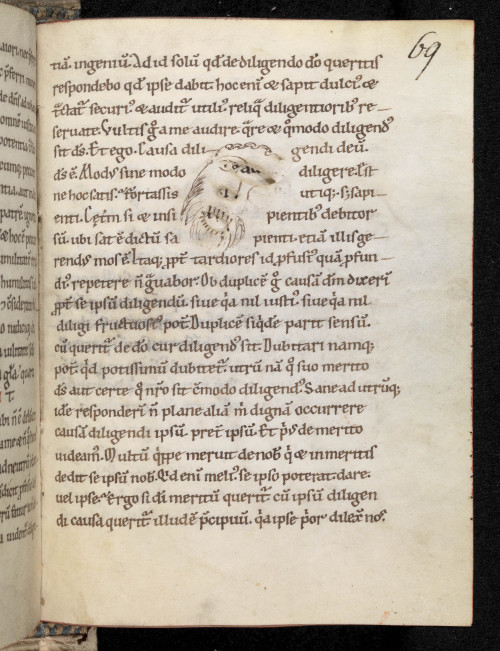 69
tiā. ingeniū. Ad id solū qd̄ de diligendo dō queritis
respondebo qd̄ ipse dabit. hoc eni᷒ & sapit dulci᷒. &
t̄ctat᷑ securi᷒. & audit᷑ utili᷒. reliq̄ diligentiorib᷒ re-
seruate. Vultis g̊ a me audire. q̄re & q̊modo diligend᷒
sit ds̄. Et ego. Causa dili gendi deū.
ds̄ ē. Mod᷒ sine modo diligere. Est
ne hoc satis. Fortassis utiq;. sz̄ sapi-
enti. Cet̄m si & insi pientib᷒ debitor
sū. ubi sat ē dictū sa pienti. etiā illis ge-
rend᷒ mos ē. Itaq; ꝓpt̄ tardiores id ꝓfusi᷒ quā ꝓfun-
di᷒ repetere n̄ g̊uabor. Ob duplicē g̊ causā dm̄ dixerī
ꝓpt̄ se ipsū diligendū. siue qͥa nil iusti᷒. siue qͥa nil
diligi fructuosi᷒ potē. Duplicē siqͥde parit sensū.
cū querit᷑ de dō cur diligend᷒ sit. Dubitari namq;
potē. qͥd potissimū dubitet᷑. utrū nā q̊ suo merito
ds̄ aut certe q̊ nr̄o sit cōmodo diligend᷒. Sane ad utrūq;
idē responderī. n̄ plane aliā m̄ dignā occurrere
causā diligendi ipsū. pret̄ ipsū. Et pͥ᷒ de merito
videam᷒. Multū qͥppe meruit de nob̄. qͥ & inmeritis
dedit se ipsū nob̄. Qͥd eni᷒ meli᷒ se ipso poterat dare.
uel ipse. Ergo si dī meritū querit᷑. cū ipsū diligen
di causa querit᷑. illud ē p̄cipuū. qͥa ipse pͥor dilex̄ nos.